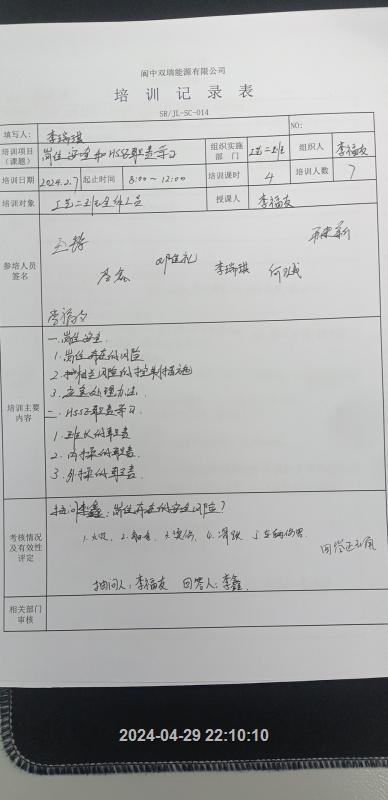 阆中双瑞能源有限公司
培 训 记 录 表
SR/JL-SC-014
填写人: 李瑞琪 NO:
培训项目(课题) 岗位安全和HSSE职责学习 组织实施部门 工艺二班 组织人 李福友
培训日期 2024.2.7 起止时间 8:00~12:00 培训课时 4 培训人数 7
培训对象 工艺二班全体人员 授课人 李福友
参培人员签名
李瑞琪
培训主要内容
一.岗位安全.
1.岗位存在的风险
2.相关风险的控制措施
3.应急处理办法.
二.HSSE职责学习.
1.班长的职责
2.内操的职责.
3.外操的职责.
考核情况及有效性评定
提问李鑫:岗位存在的安全风险?
1.火灾、2. 3. 4.滑跌 5.车辆伤害
回答正确
提问人:李福友 回答人:李鑫
相关部门审核
2024-04-29 22:10:10